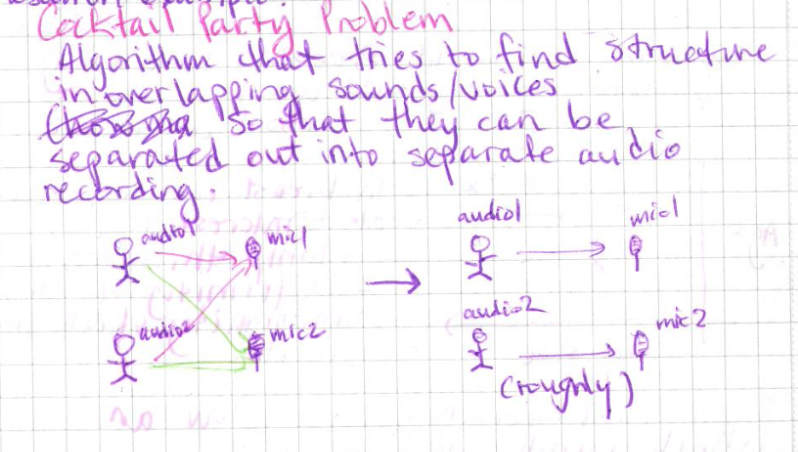 example:
Cocktail Party Problem
Algorithm that tries to find structure
in overlapping sounds/voices
so that they can be
separated out into separate audio
recording.
audio1 mic1
audio2 mic2
audio1 mic1
audio2 mic2
(roughly)